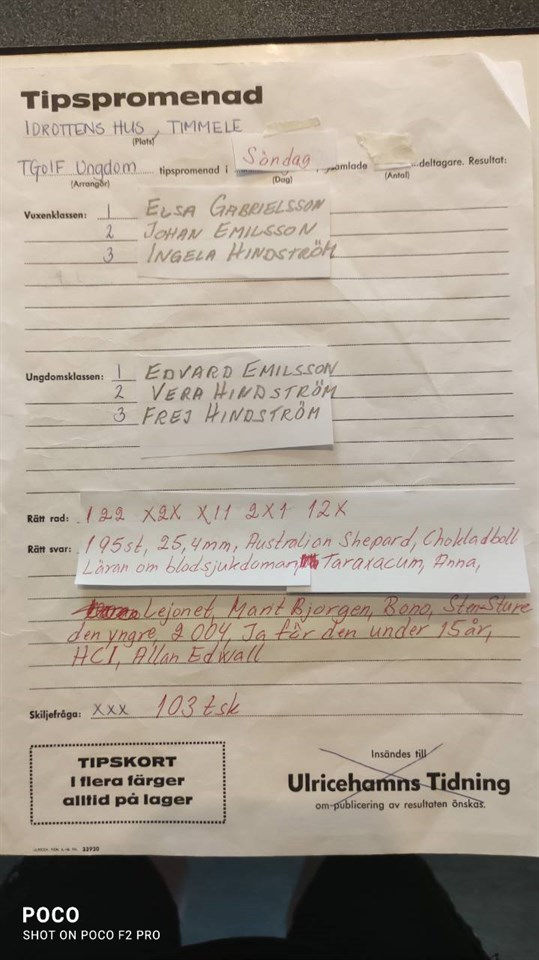 Tipspromenad
IDROTTENS HUS, TIMMELE
(Plats)
TGoIF Ungdom tipspromenad i Söndag samlade deltagare. Resultat:
(Arrangör) (Dag) (Antal)
Vuxenklassen: 1 ELSA GABRIELSSON
2 JOHAN EMILSSON
3 INGELA HINDSTRÖM
Ungdomsklassen: 1 EDVARD EMILSSON
2 VERA HINDSTRÖM
3 FREJ HINDSTRÖM
Rätt rad: 122 X2X X11 2X1 12X
Rätt svar: 195st, 25,4mm, Australian Shepard, Chokladboll
Läran om blodsjukdomar, Taraxacum, Anna,
Lejonet, Marit Bjorgen, Bono, Sten-Sture
den yngre, 2004, Ja för den under 15 år,
HCI, Allan Edwall
Skiljefråga: xxx 103 tsk
TIPSKORT
I flera färger
alltid på lager
Insändes till
Ulricehamns Tidning
om publicering av resultaten önskas.
32930
POCO
SHOT ON POCO F2 PRO